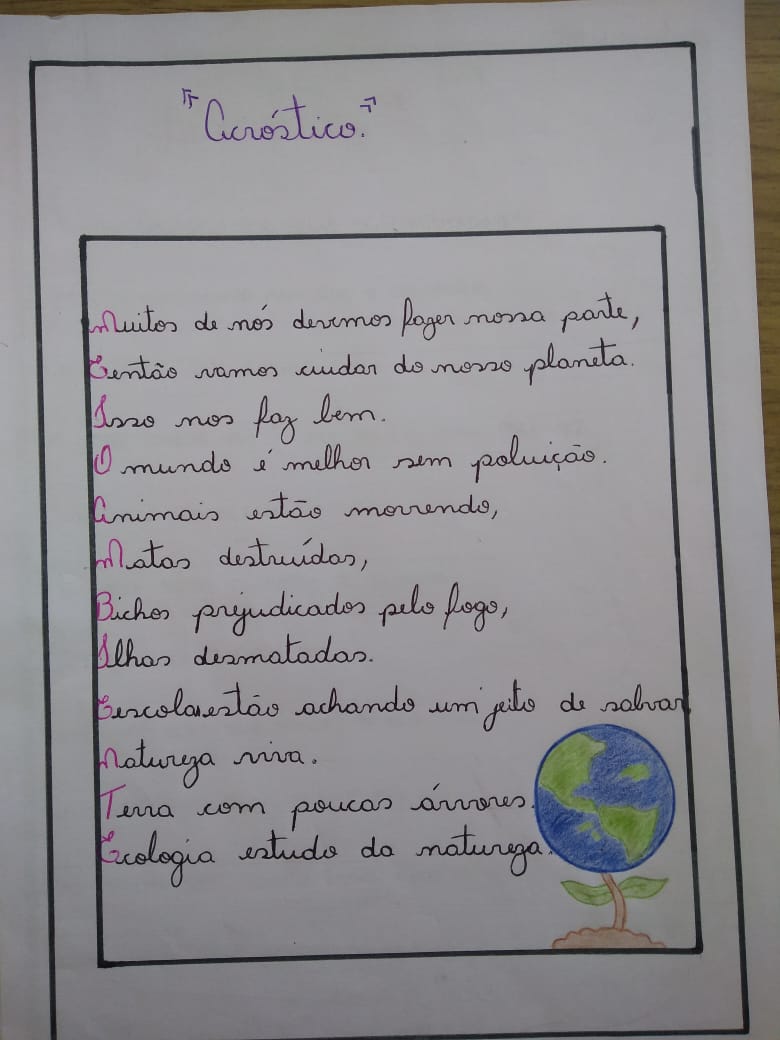 "Acróstico."
Muitos de nós devemos fazer nossa parte,
Eentão vamos cuidar do nosso planeta.
Isso nos faz bem.
O mundo é melhor sem poluição.
Animais estão morrendo,
Matas destruídas,
Bichos prejudicados pelo fogo,
Ilhas desmatadas.
Eescolas estão achando um jeito de salvar
Natureza viva.
Terra com poucas árvores.
Ecologia estudo da natureza.